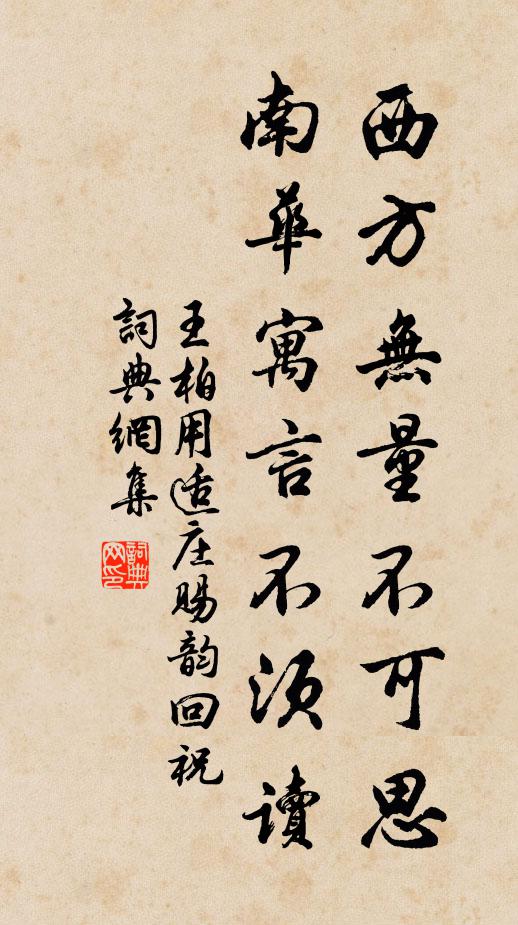 西方無量不可思
南華寓言不須讀
王柏用适庄賜韵回祝
詞典網集
詞典网印